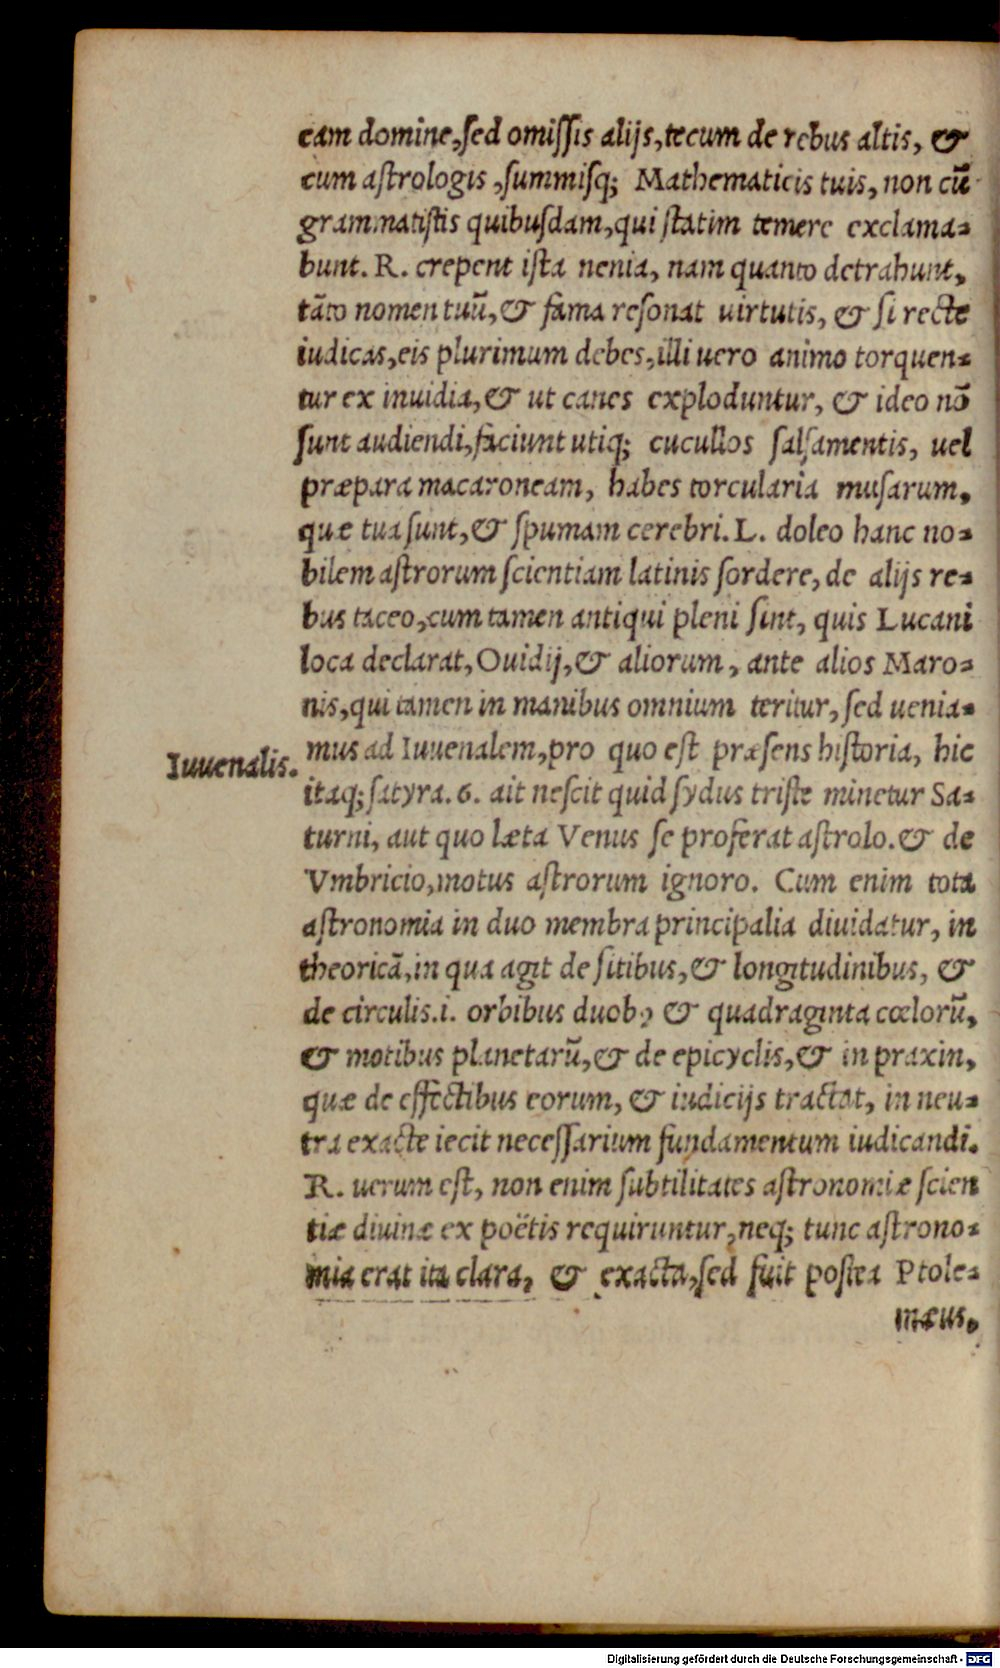 eam domine, sed omiſſis alijs, tecum de rebus altis, &
cum aſtrologis, ſummiſq; Mathematicis tuis, non cũ
grammatiſtis quibuſdam, qui ſtatim temere exclama-
bunt. R. crepent iſta nenia, nam quanto detrahunt,
tãto nomen tuũ, & fama reſonat uirtutis, & ſi recte
iudicas, eis plurimum debes, illi uero animo torquen-
tur ex inuidia, & ut canes exploduntur, & ideo nõ
ſunt audiendi, faciunt utiq; cucullos ſalſamentis, uel
præpara macaroneam, habes torcularia muſarum,
quæ tua ſunt, & ſpumam cerebri. L. doleo hanc no-
bilem aſtrorum ſcientiam latinis ſordere, de alijs re-
bus taceo, cum tamen antiqui pleni ſint, quis Lucani
loca declarat, Ouidij, & aliorum, ante alios Maro-
nis, qui tamen in manibus omnium teritur, ſed uenia-
Iuuenalis.
mus ad Iuuenalem, pro quo eſt præſens hiſtoria, hic
itaq; ſatyra. 6. ait neſcit quid ſydus triſte minetur Sa-
turni, aut quo læta Venus ſe proferat aſtrolo. & de
Vmbricio, motus aſtrorum ignoro. Cum enim tota
aſtronomia in duo membra principalia diuidatur, in
theoricã, in qua agit de ſitibus, & longitudinibus, &
de circulis .i. orbibus duobꝰ & quadraginta cœlorũ,
& motibus planetarũ, & de epicyclis, & in praxin,
quæ de effectibus eorum, & iudicijs tractat, in neu-
tra exacte iecit neceſſarium fundamentum iudicandi.
R. uerum eſt, non enim ſubtilitates aſtronomiæ ſcien
tiæ diuinæ ex poëtis requiruntur, neq; tunc aſtrono-
mia erat ita clara, & exacta, ſed fuit poſtea Ptole-
mæus,
Digitalisierung gefördert durch die Deutsche Forschungsgemeinschaft - DFG